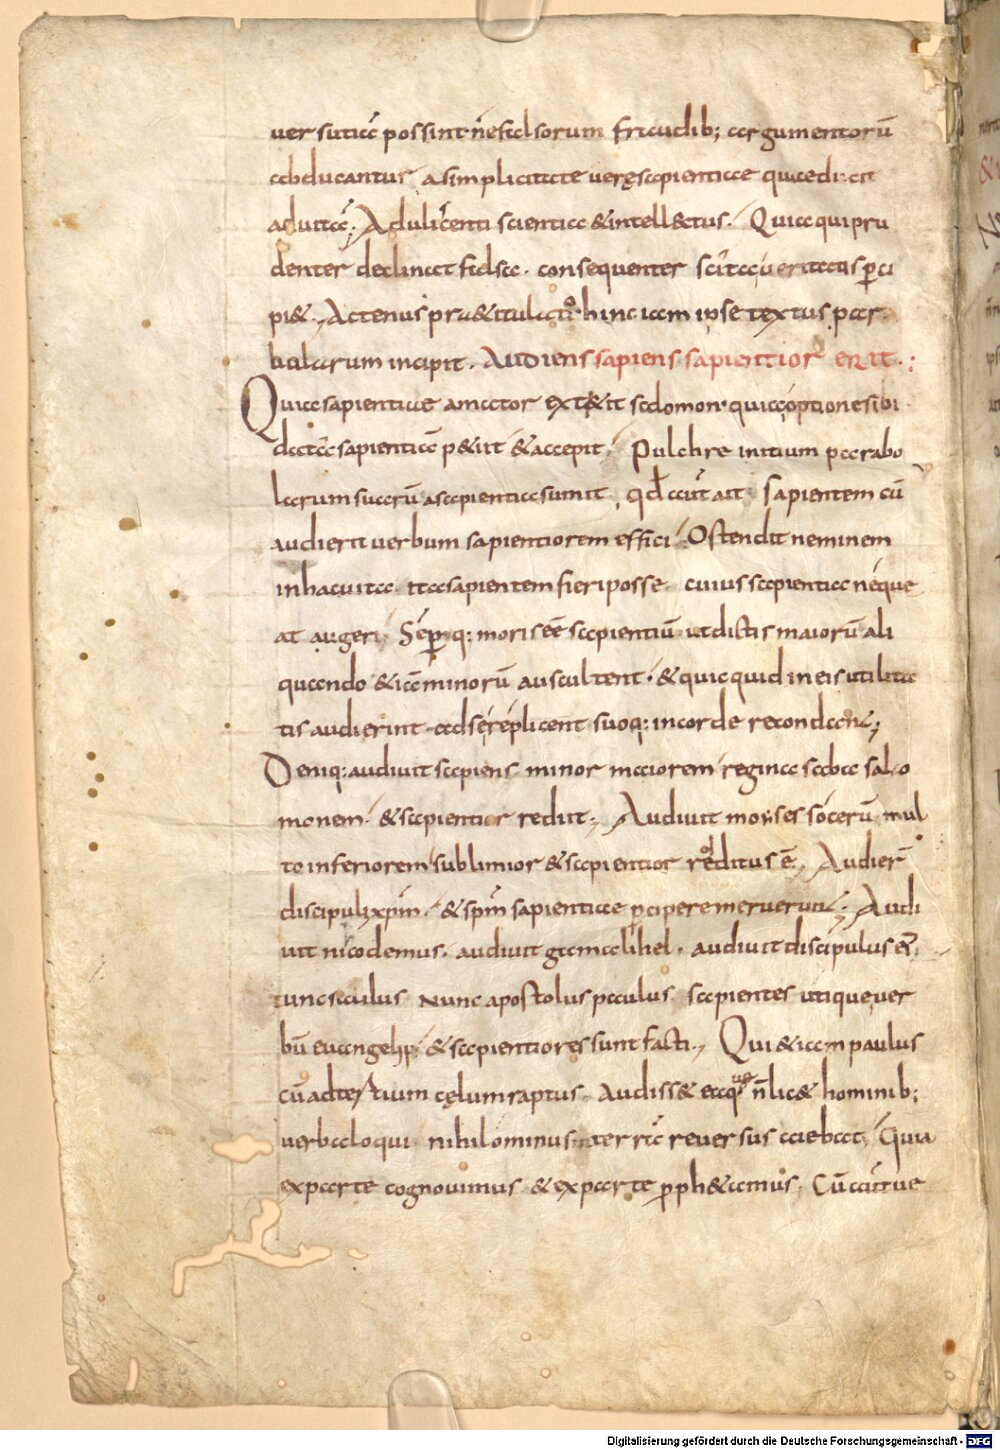 uersutia possint ne falsorum fraudib; argumentorū
abducantur, a simplicitate uerę sapientiae quae dicit
ad uitā; Adulescenti scientia & intellectus. Quia qui pru
denter declinat falsa. consequenter scita ueritatis pci
pi&. Actenus pra&itulatio hinc iam ipse textus par
abolarum incipit. Audiens sapiens sapientior erit.
Quia sapientiae amator extitit salomon. quia optione sibi
data sapientiā p&iit & accepit. Pulchre initium parabo
larum suarū a sapientia sumit, qđ aūt ait Sapientem cū
audierit uerbum sapientiorem effici. Ostendit neminem
in hac uita. ita sapientem fieri posse. cuius sapientia neque
at augeri. Sēperq: moris eē sapientiū ut dictis maiorū ali
quando & iā minorū auscultent. & quicquid in eis utilita
tis audierint ad se replicent suoq: in corde recondant;
Deniq: audiuit sapiens minor maiorem regina saba salo
monem. & sapientior rediit. Audiuit moyses socerū mul
to inferiorem sublimior & sapientior redditus ē. Audierī
discipuli xpm. & spm sapientiae pcipere meruerunt. Audi
uit nicodemus. audiuit gamalihel. audiuit discipulus ei
tunc saulus Nunc apostolus paulus sapientes utique uer
bū euangelii & sapientiores sunt facti. Qui & iam paulus
cū ad tertium cęlum raptus. Audiss& ea quę ñ lic& hominib;
uerba loqui nihilominus in terrā reuersus aiebat, Quia
ex parte cognouimus & ex parte pph&amus. Cū aūt ue
Digitalisierung gefördert durch die Deutsche Forschungsgemeinschaft - DFG